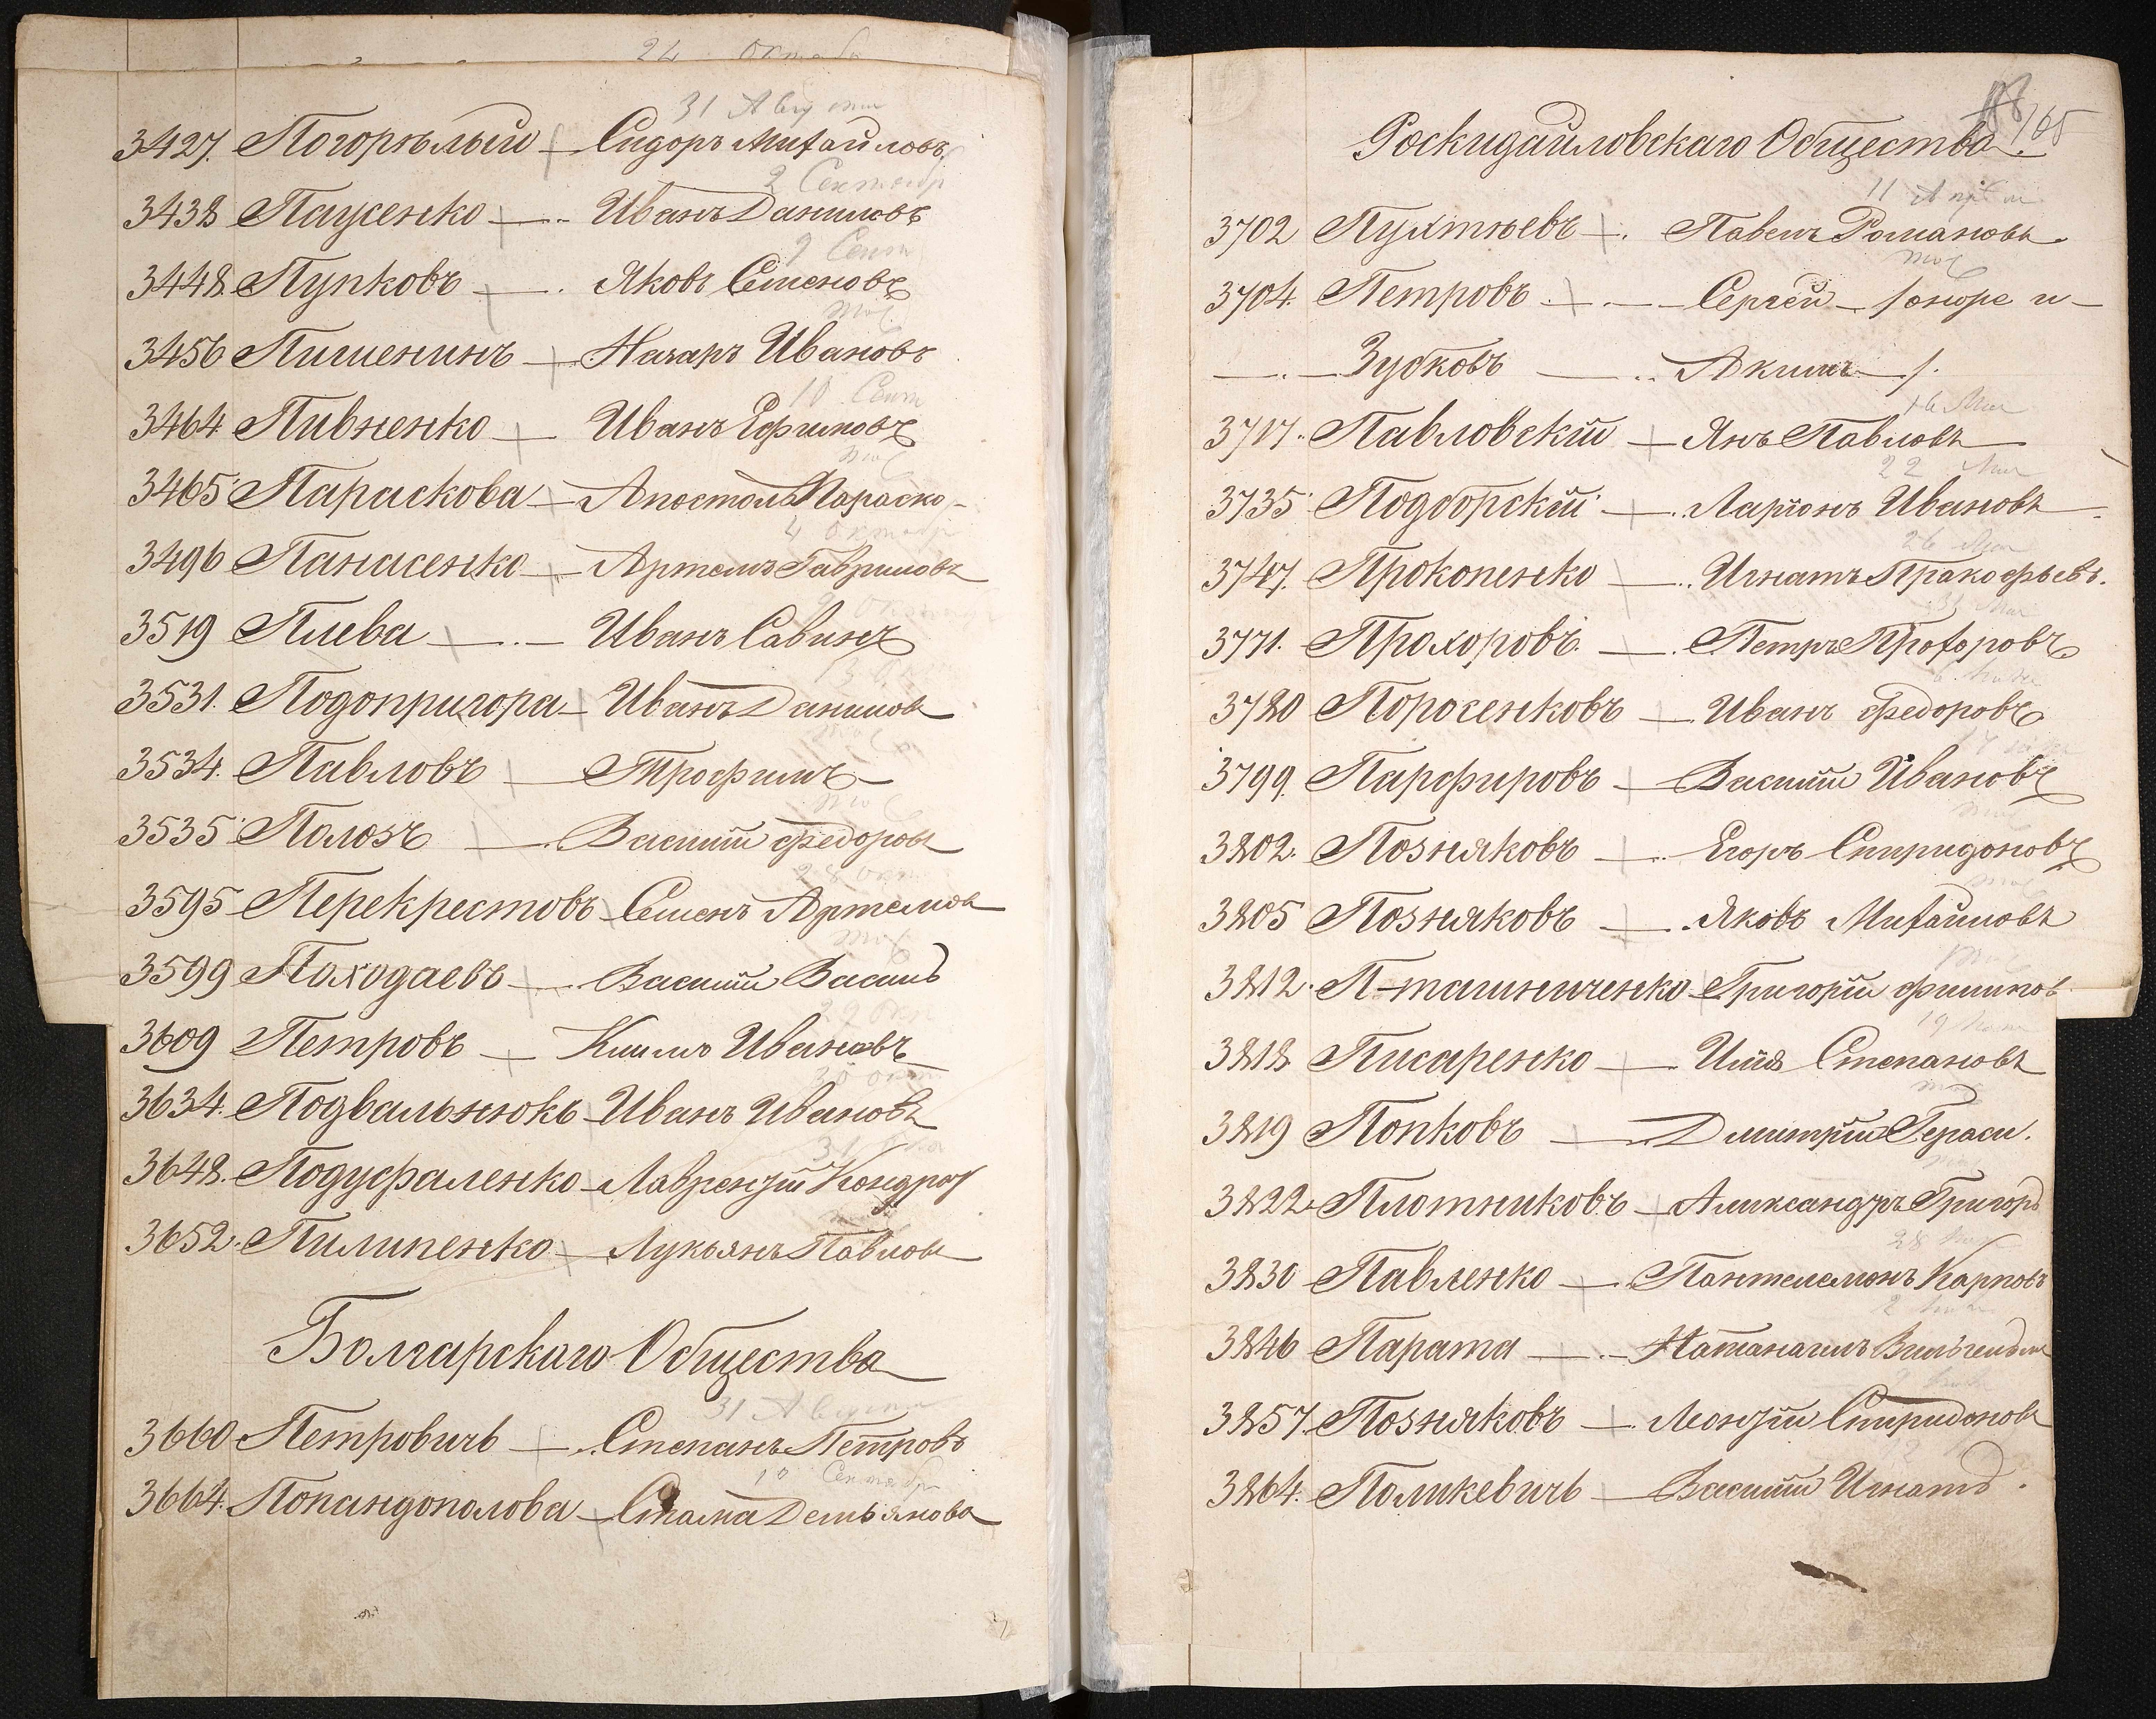 24 октяб
31 Августа
3427. Погорѣлый — Сидоръ Михайловъ
2 Сентябр
3438 Пауженко — Иванъ Даниловъ
9 Сент
3448 Пупковъ — Яковъ Семеновъ
тог
3456 Пишенинъ — Назаръ Ивановъ
10 Сент
3464 Пивненко — Иванъ Ефимовъ
3465 Параскова — Апостолъ Параско-
4 октябр
3496 Панасенко — Артемъ Гавриловъ
3519 Плева — Иванъ Савинъ
3531. Подопригора — Иванъ Данилов
3534. Павловъ — Трофимъ —
3535 Полозъ — Василій Федоров
28 окт
3595 Перекрестовъ — Семенъ Артемов
3599 Походаевъ — Василій Васил
29 окт
3609 Петровъ — Климъ Ивановъ
30 окт
3634. Подвальнюкъ — Иванъ Иванов
31
3648. Подуфаленко — Лаврентій Кондрат
3652. Пилипенко — Лукьянъ Павлов
Болгарскаго Общества
31 Августа
3660 Петровичъ — Степанъ Петровъ
10 Сентябр
3664. Попандополова — Стама Демьянова
165
Роскидайловскаго Общества.
11 Апрѣл
3702 Пухтѣевъ — Павелъ Романовъ
3704. Петровъ — Сергѣй — / онъ же и —
— Зубковъ — Акимъ — /.
16 Мая
3717. Павловскій — Янъ Павловъ
22 Мая
3735 Подборскій — Ларіонъ Ивановъ
26 Мая
3747. Прокопенко — Игнатъ Пракофьевъ.
31 Мая
3771. Прохоровъ — Петръ Прохоровъ
3780 Поросенковъ — Иванъ Федоровъ
3799. Парфировъ — Василій Ивановъ
3802. Позняковъ — Егоръ Спиридоновъ
3805 Позняковъ — Яковъ Михайловъ
3812. П-ташниченко — Григорій Филипов
3818 Писаренко — Илія Степановъ
3819 Попковъ — Дмитрій Гераси.
3822. Плотниковъ — Александръ Григор
3830 Павленко — Пантелемонъ Карповъ
3846 Парата — Натанаилъ Вильгельм
3857. Позняковъ — Леонтій Спиридонов
3864. Поликевичъ — Василій Игнат.